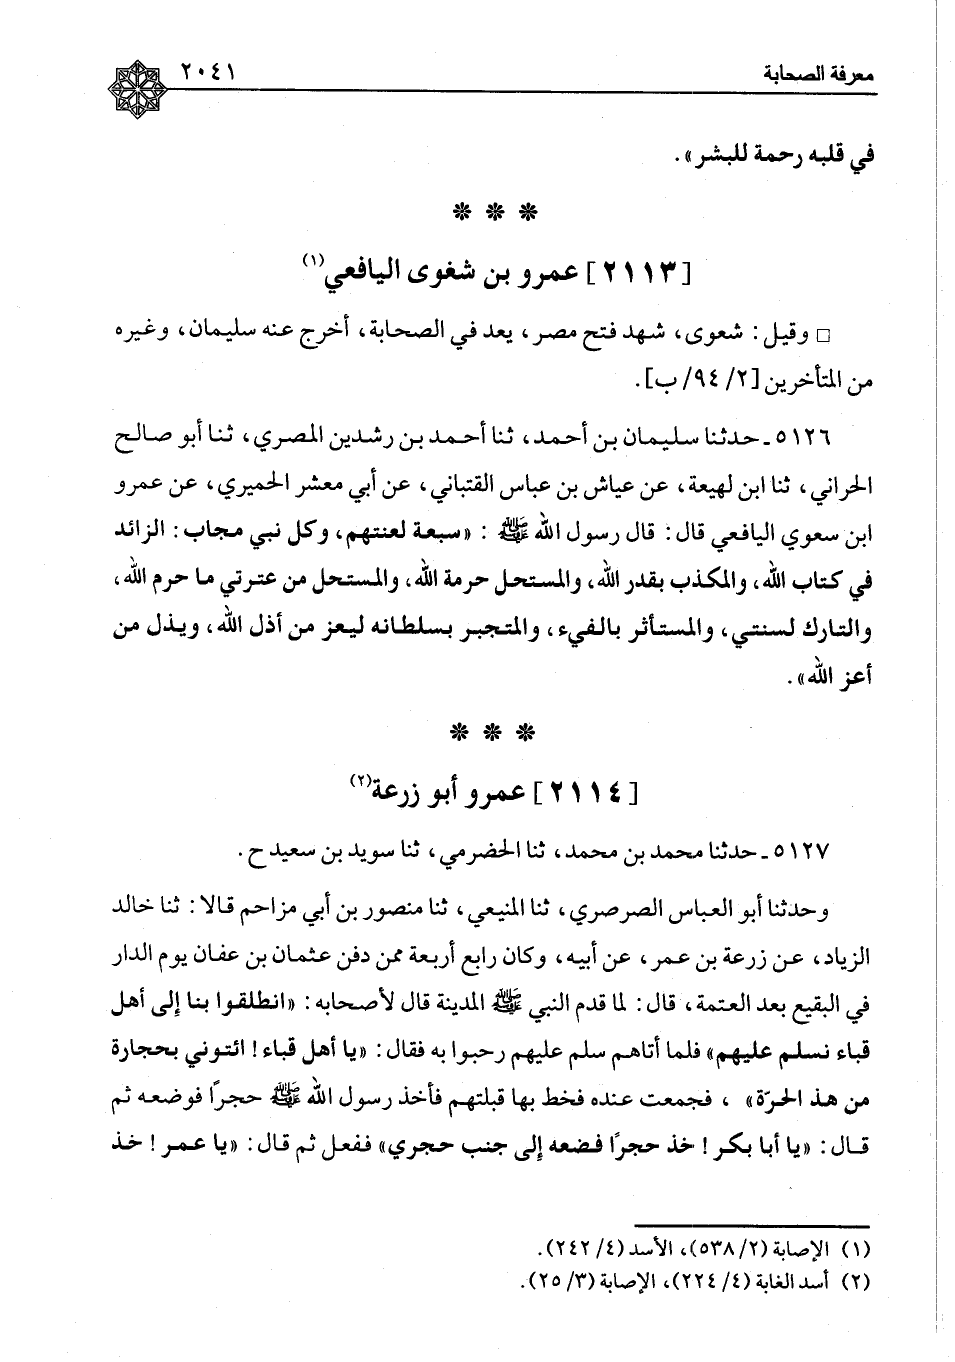 معرفة الصحابة ٢٠٤١
في قلبه رحمة للبشر».
* * *
[٢١١٣] عمرو بن شغوى اليافعي(١)
□ وقيل: شعوى، شهد فتح مصر، يعد في الصحابة، أخرج عنه سليمان، وغيره
من المتأخرين [٢/ ٩٤/ ب].
٥١٢٦ ـ حدثنا سليمان بن أحمد، ثنا أحمد بن رشدين المصري، ثنا أبو صالح
الحراني، ثنا ابن لهيعة، عن عياش بن عباس القتباني، عن أبي معشر الحميري، عن عمرو
ابن سعوي اليافعي قال: قال رسول الله ﷺ : «سبعة لعنتهم، وكل نبي مجاب: الزائد
في كتاب الله، والمكذب بقدر الله، والمستحل حرمة الله، والمستحل من عترتي ما حرم الله،
والتارك لسنتي، والمستأثر بالفيء، والمتجبر بسلطانه ليعز من أذل الله، ويذل من
أعز الله».
* * *
[٢١١٤] عمرو أبو زرعة(٢)
٥١٢٧ ـ حدثنا محمد بن محمد، ثنا الحضرمي، ثنا سويد بن سعيد ح.
وحدثنا أبو العباس الصرصري، ثنا المنيعي، ثنا منصور بن أبي مزاحم قالا: ثنا خالد
الزياد، عن زرعة بن عمر، عن أبيه، وكان رابع أربعة ممن دفن عثمان بن عفان يوم الدار
في البقيع بعد العتمة، قال: لما قدم النبي ﷺ المدينة قال لأصحابه: «انطلقوا بنا إلى أهل
قباء نسلم عليهم» فلما أتاهم سلم عليهم رحبوا به فقال: «يا أهل قباء! ائتوني بحجارة
من هذ الحرّة» ، فجمعت عنده فخط بها قبلتهم فأخذ رسول الله ﷺ حجرًا فوضعه ثم
قال: «يا أبا بكر! خذ حجرًا فضعه إلى جنب حجري» ففعل ثم قال: «يا عمر! خذ
(١) الإصابة (٢/ ٥٣٨)، الأسد (٤/ ٢٤٢).
(٢) أسد الغابة (٤/ ٢٢٤)، الإصابة (٣/ ٢٥).